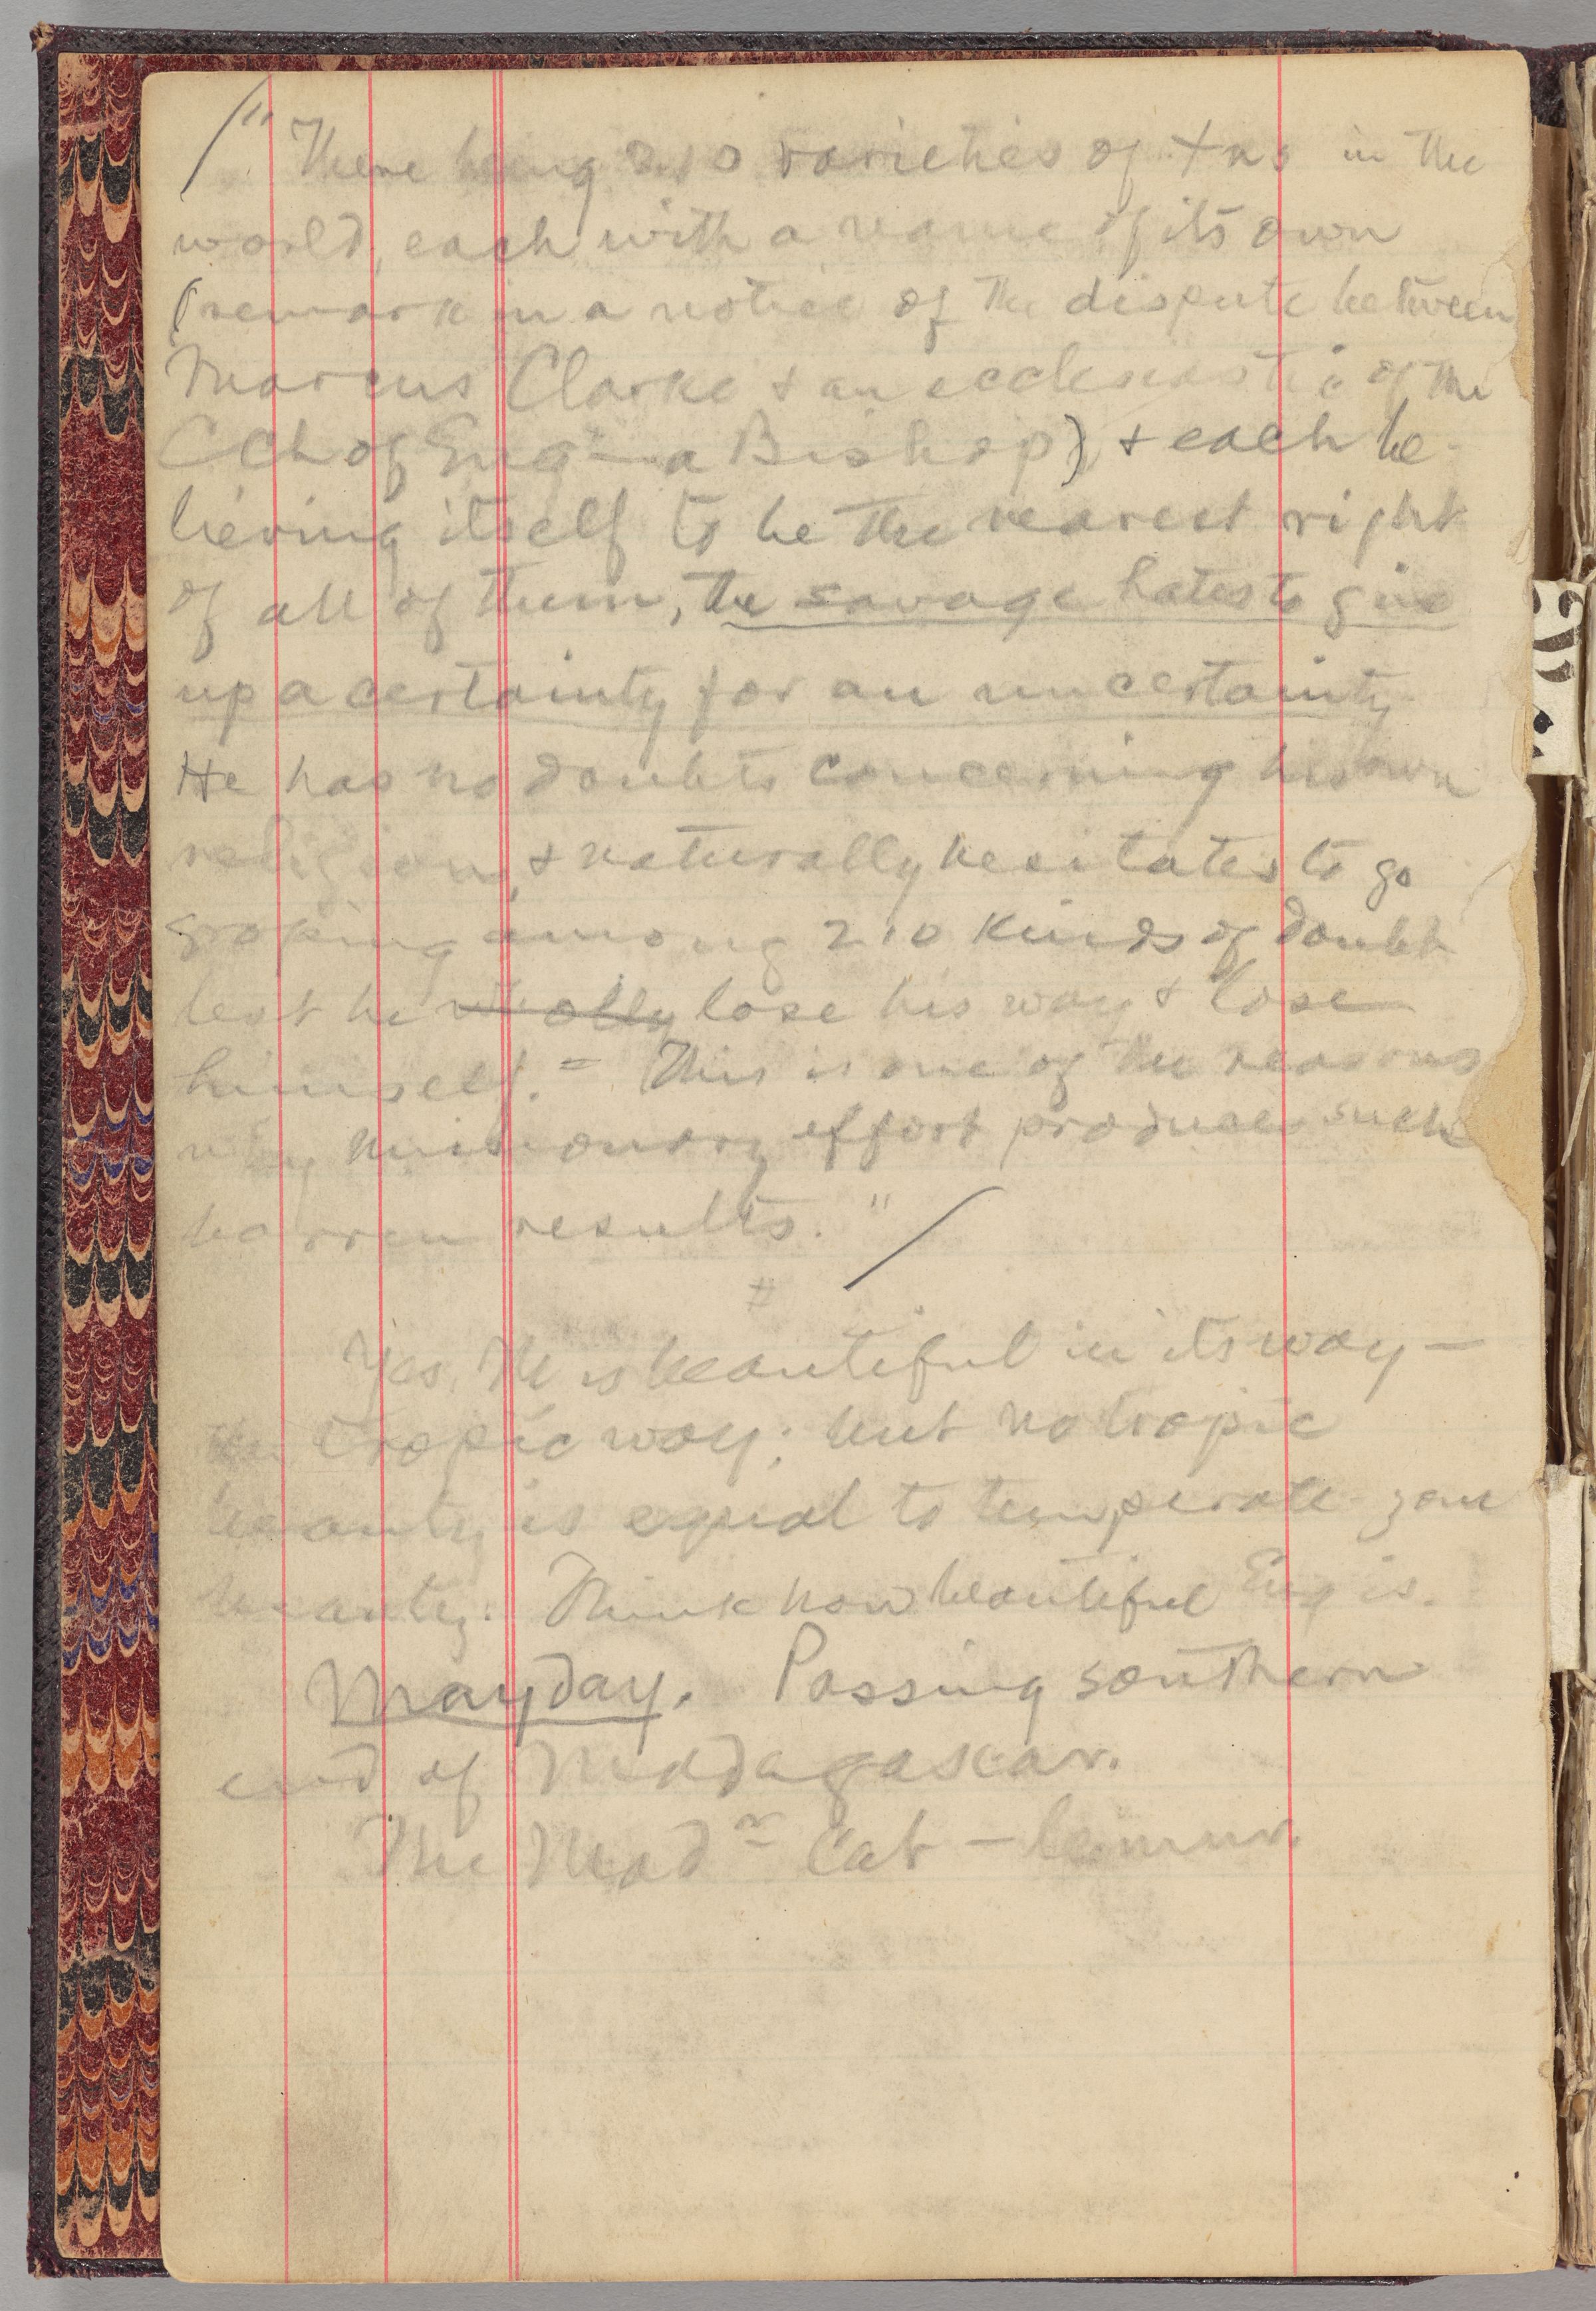 "There being 210 varieties of +ns in the
world, each with a name of its own
(remark in a notice of the dispute between
Marcus Clarke & an ecclesiastic of the
Ch of Eng — a Bishop), & each be-
lieving itself to be the nearest right
of all of them, the savage hates to give
up a certainty for an uncertainty
He has no doubts concerning his own
religion, & naturally hesitates to go
groping among 210 kinds of doubt
lest he wholly lose his way & lose
himself. = This is one of the reasons
why missionary effort produces such
barren results."
#
Yes, M is beautiful in its way —
the tropic way; but no tropic
beauty is equal to temperate-zone
beauty. Think how beautiful Eng is.
May day. Passing southern
end of Madagascar.
The Madn Cat — lemur.